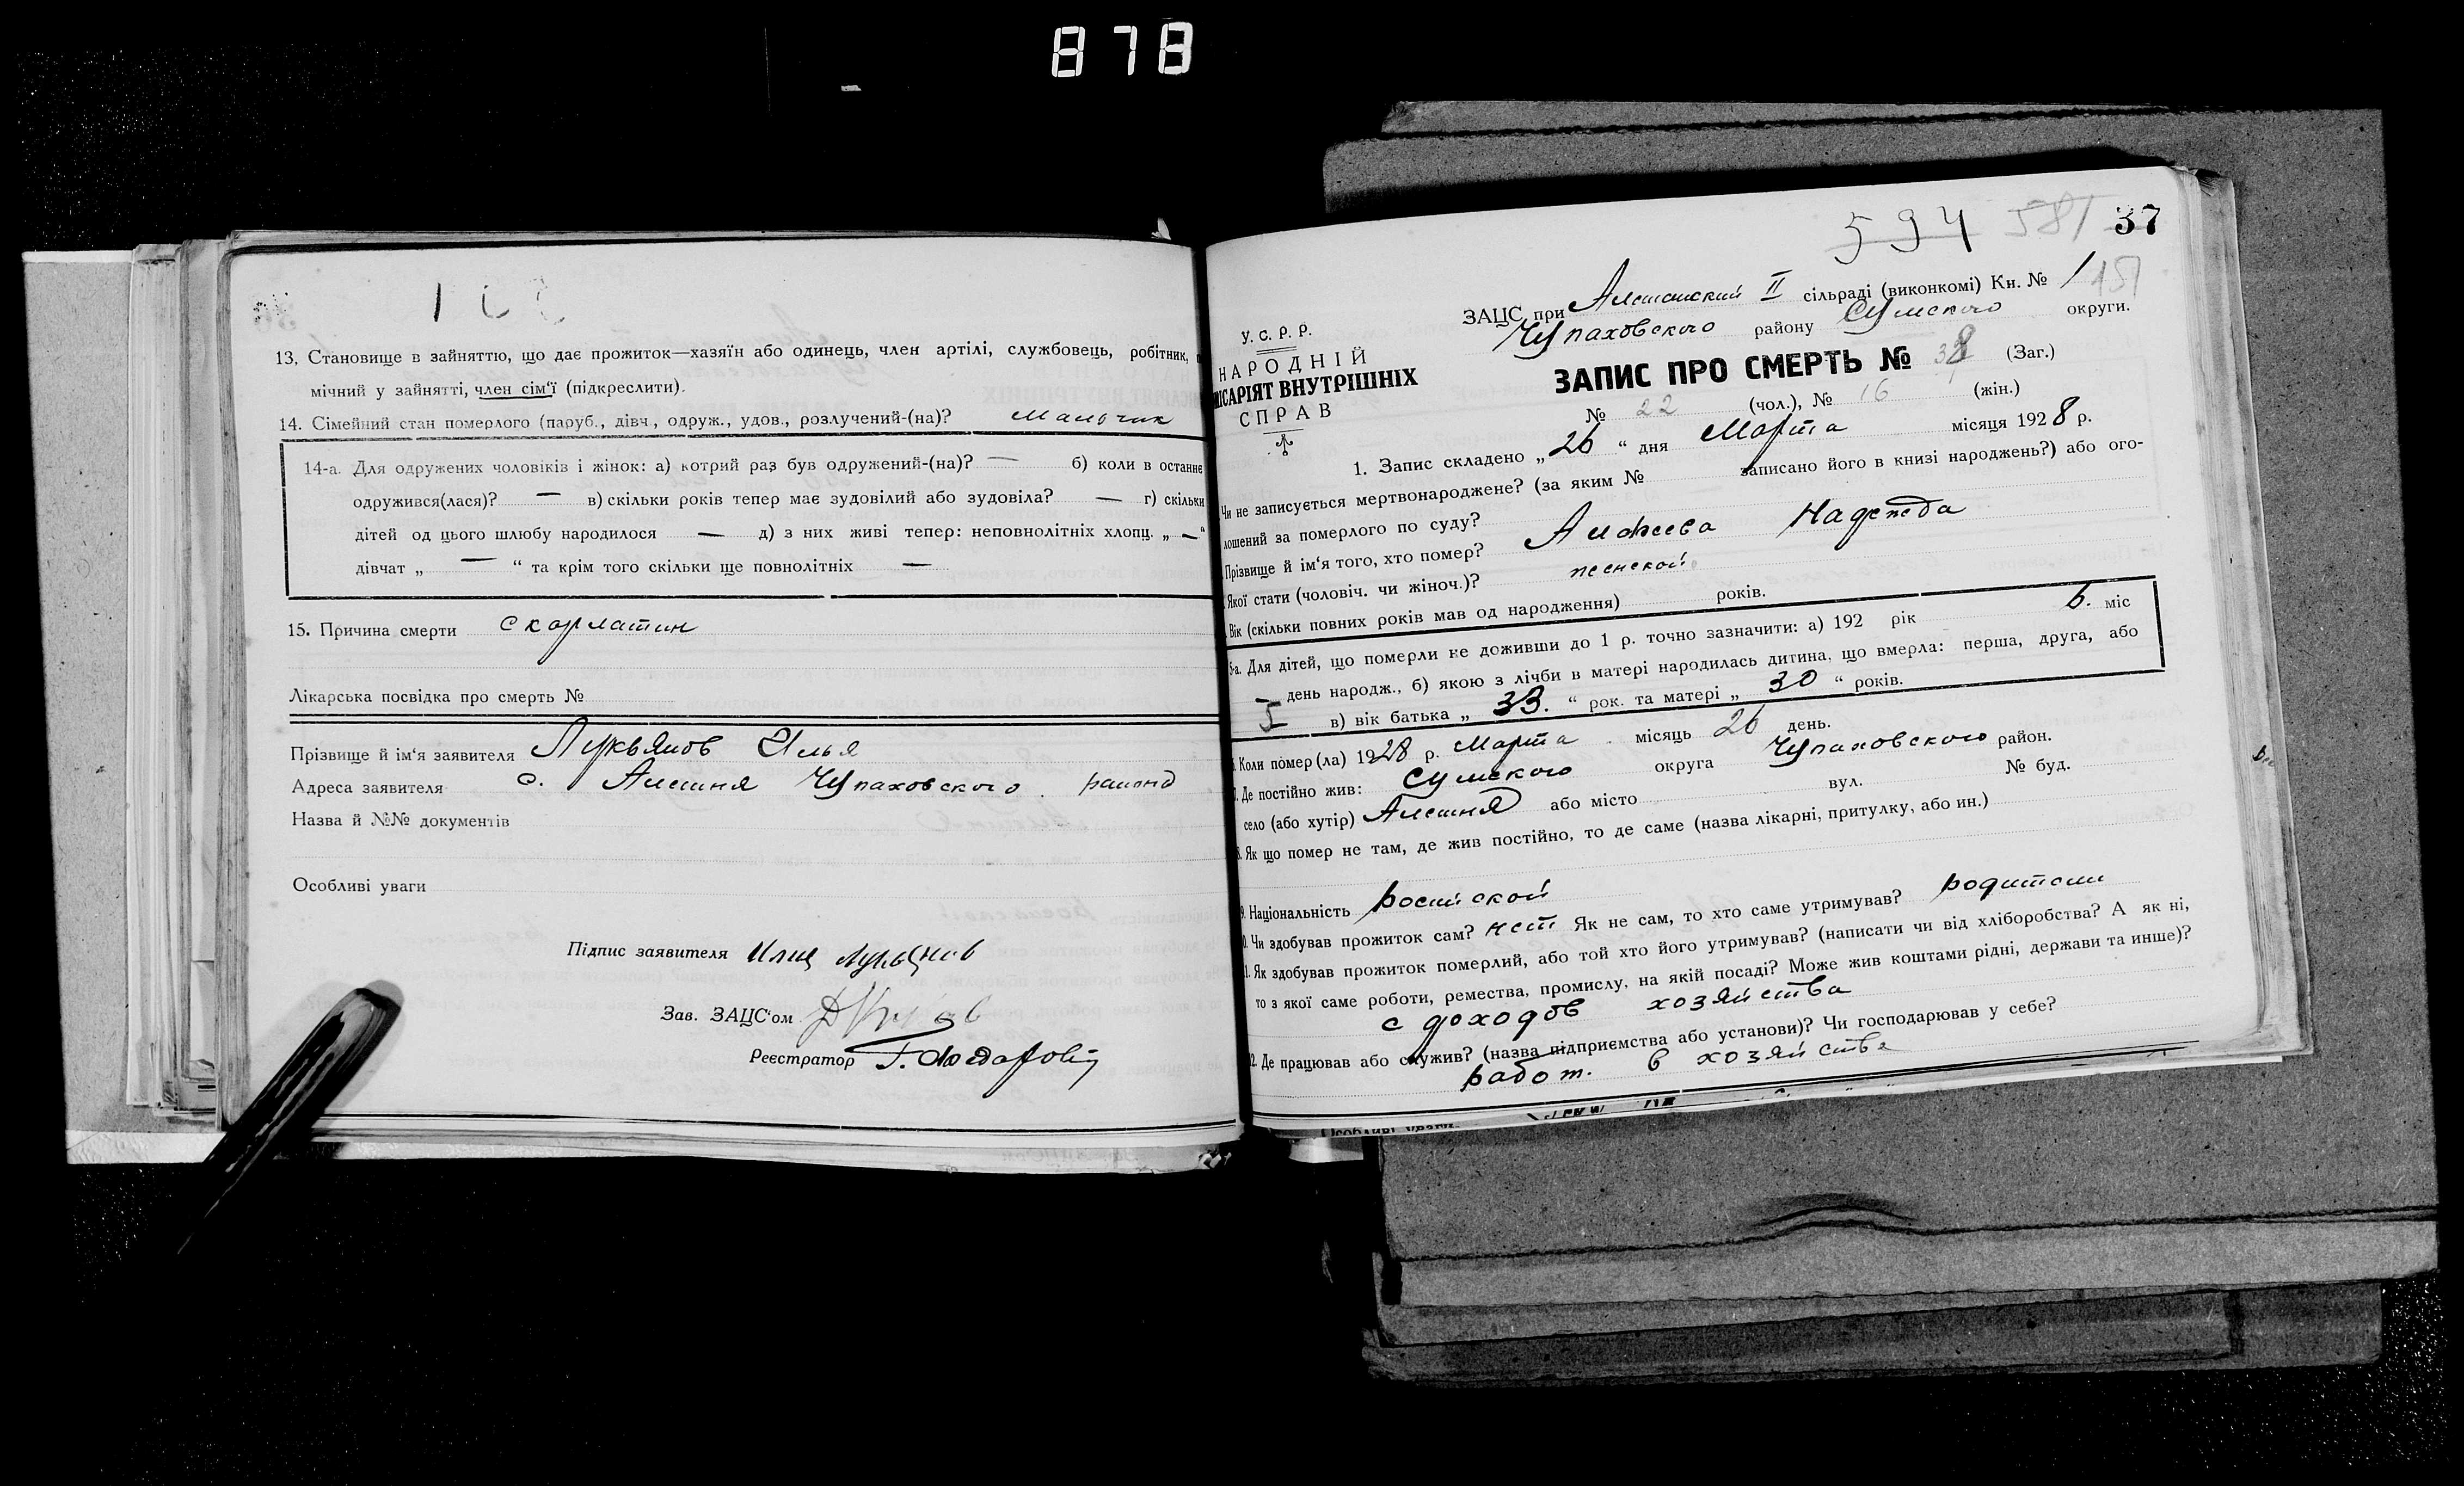 878
13. Становище в зайняттю, що дає прожиток—хазяїн або одинець, член артілі, службовець, робітник,
мічний у зайнятті, член сім'ї (підкреслити).
14. Сімейний стан померлого (паруб., дівч., одруж., удов., розлучений-(на)? мальчик
14-а. Для одружених чоловіків і жінок: а) котрий раз був одружений-(на)? — б) коли в останнє
одружився(лася)? — в) скільки років тепер має зудовілий або зудовіла? — г) скільки
дітей од цього шлюбу народилося — д) з них живі тепер: неповнолітніх хлопц. „ — “
дівчат „ — “ та крім того скільки ще повнолітніх —
15. Причина смерти скарлатин
Лікарська посвідка про смерть №
Прізвище й ім'я заявителя Лукьянов Илья
Адреса заявителя с. Алешня Чупаховского района
Назва й №№ документів
Особливі уваги
Підпис заявителя Илья Лукьянов
Зав. ЗАЦС'ом
Реєстратор
594 581 37
ЗАЦС при Алешанский II сільраді (виконкомі) Кн. № 1 151
Чупаховского району Сумского округи.
У. С. Р. Р.
НАРОДНІЙ
ІСАРІЯТ ВНУТРІШНІХ
СПРАВ
ЗАПИС ПРО СМЕРТЬ № 38 (Заг.)
№ 22 (чол.), № 16 (жін.)
1. Запис складено „ 26 “ дня Марта місяця 1928 р.
Чи не записується мертвонароджене? (за яким № записано його в книзі народжень?) або ого-
лошений за померлого по суду?
Прізвище й ім'я того, хто помер? Надежда
Якої стати (чоловіч. чи жіноч.)? женской
Вік (скільки повних років мав од народження) років.
5-а. Для дітей, що померли не доживши до 1 р. точно зазначити: а) 192 рік 6. міс
день народж., б) якою з лічби в матері народилась дитина, що вмерла: перша, друга, або
I в) вік батька „ 33. “ рок. та матері „ 30 “ років.
Коли помер(ла) 1928 р. Марта місяць 26 день.
7. Де постійно жив: Сумского округа Чупаховского район.
село (або хутір) Алешня або місто вул. № буд.
8. Як що помер не там, де жив постійно, то де саме (назва лікарні, притулку, або ин.)
9. Національність росийской
0. Чи здобував прожиток сам? нет Як не сам, то хто саме утримував? родители
1. Як здобував прожиток померлий, або той хто його утримував? (написати чи від хліборобства? А як ні,
то з якої саме роботи, ремества, промислу, на якій посаді? Може жив коштами рідні, держави та инше)?
с доходов хозяйства
2. Де працював або служив? (назва підприємства або установи)? Чи господарював у себе?
работ. в хозяйстве
Особливі уваги